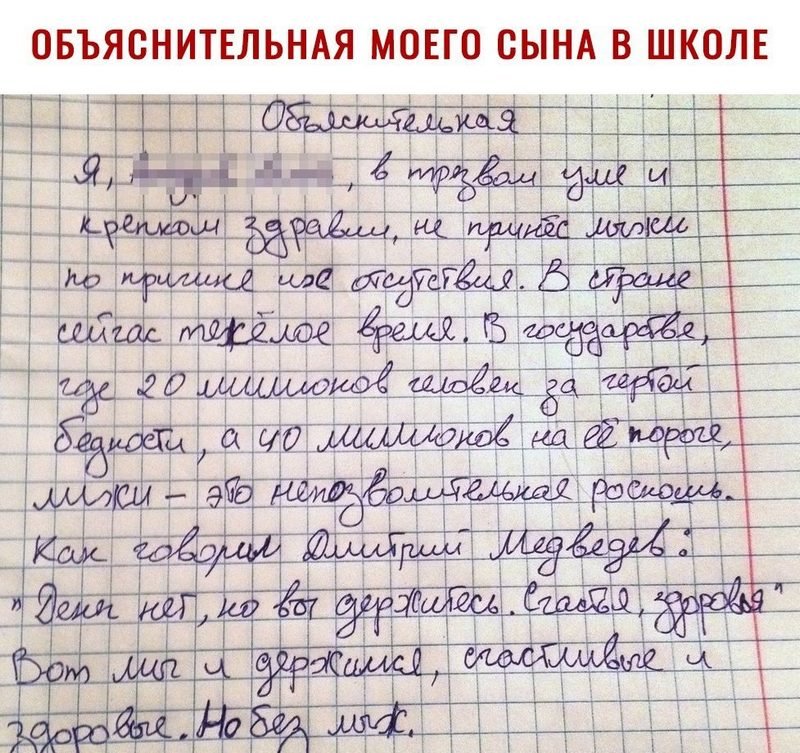 ОБЪЯСНИТЕЛЬНАЯ МОЕГО СЫНА В ШКОЛЕ
Объяснительная
Я, , в трезвом уме и
крепком здравии, не принёс лыжи
по причине их отсутствия. В стране
сейчас тяжёлое время. В государстве,
где 20 миллионов человек за чертой
бедности, а 40 миллионов на её пороге,
лыжи – это непозволительная роскошь.
Как говорил Дмитрий Медведев:
"Денег нет, но вы держитесь. Счастья, здоровья"
Вот мы и держимся, счастливые и
здоровые. Но без лыж.